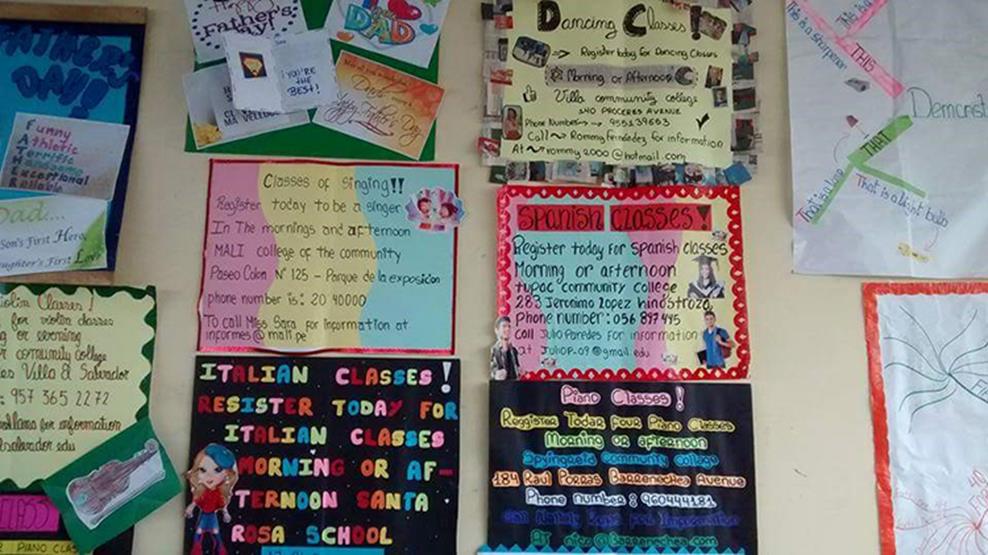 FATHER'S
DAY!
Funny
Athletic
Terrific
Handsome
Exceptional
Reliable
Dad...
Son's First Hero,
Daughter's First Love
Father's
Day!
I
DAD
¡YOU'RE
THE
BEST!
Happy Father's Day
Dancing Classes!
Register today for Dancing Classes
Morning or Afternoon
Villa community college
540 PROCERES AVENUE
Phone Number
Call Rommy Fernández for information
At rommy2000@hotmail.com
This is
This is a sharpener
THIS
Demonst
THAT
That is a
That is a light bulb
Classes of singing!!
Register today to be a singer
In The mornings and afternoon
MALI college of the community
Paseo Colon N° 125 - Parque de la exposicion
phone number is: 20 40000
To call Miss Sara for information at
informes@mali.pe
Spanish Classes!
Register today for spanish classes
Morning or afternoon
tupac community college
283 Jeronimo Lopez hindstroza
phone number: 056 897 445
call Julio Paredes for information
at JulioP.09@gmail.edu
Violin Classes!
for violin classes
or evening
comunity college
Villa el Salvador
: 957 365 2272
for information
salvador.edu
CLASS
PIANO CLAS
ITALIAN CLASSES!
RESISTER TODAY FOR
ITALIAN CLASSES
MORNING OR AF-
TERNOON SANTA
ROSA SCHOOL
Piano Classes!
Reggister Today Four Piano Classes
Morning or afternoon
Community College
184 Raul Porras Barrenechea Avenue
Phone number: 960444181
Call For Information
AT @barrenechea.com